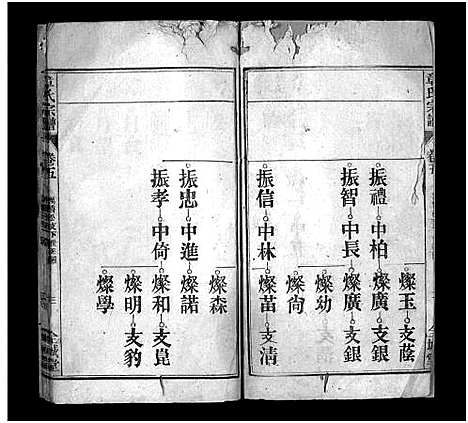 章氏宗譜
卷五
燦玉 支蔭
振禮 中柏 燦廣 支銀
振智 中長 燦廣 支銀
燦幼
燦尚
振信 中林 燦苗 支清
燦森
振忠 中進 燦諾
振孝 中倚 燦和 支崑
燦明 支豹
燦學
章氏宗譜
卷五
全城堂